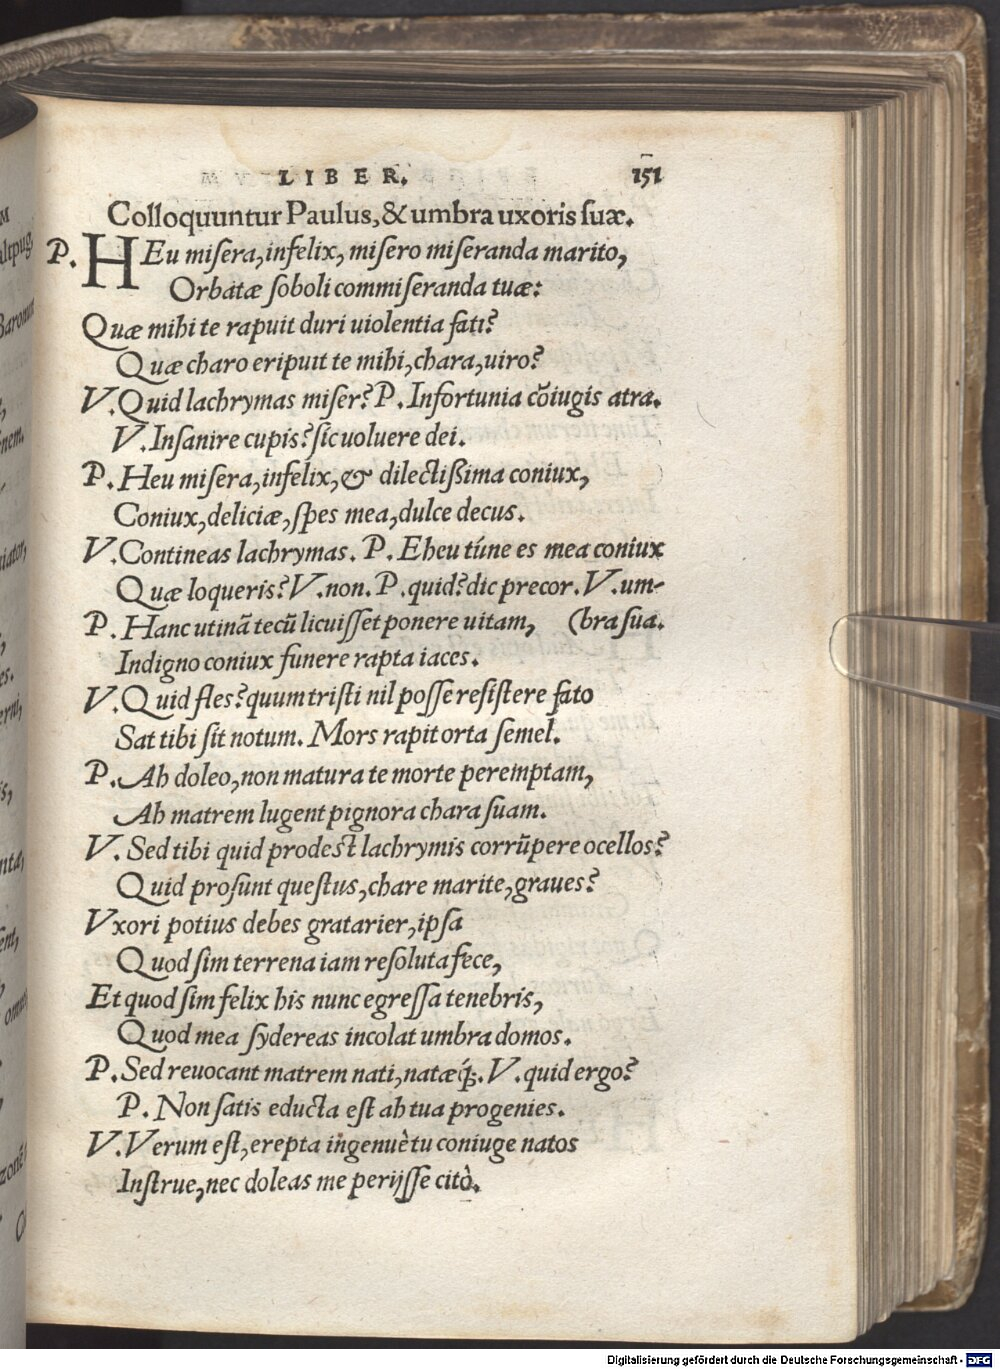 LIBER. 151
Colloquuntur Paulus, & umbra uxoris suæ.
P. HEu misera, infelix, misero miseranda marito,
Orbatæ soboli commiseranda tuæ:
Quæ mihi te rapuit duri uiolentia fati?
Quæ charo eripuit te mihi, chara, uiro?
V. Quid lachrymas miser? P. Infortunia cōiugis atra.
V. Insanire cupis? sic uoluere dei.
P. Heu misera, infelix, & dilectißima coniux,
Coniux, deliciæ, spes mea, dulce decus.
V. Contineas lachrymas. P. Eheu túne es mea coniux
Quæ loqueris? V. non. P. quid? dic precor. V. um-
P. Hanc utinā tecū licuisset ponere uitam, (bra sua.
Indigno coniux funere rapta iaces.
V. Quid fles? quum tristi nil posse resistere fato
Sat tibi sit notum. Mors rapit orta semel.
P. Ah doleo, non matura te morte peremptam,
Ah matrem lugent pignora chara suam.
V. Sed tibi quid prodest lachrymis corrūpere ocellos?
Quid prosunt questus, chare marite, graues?
Vxori potius debes gratarier, ipsa
Quod sim terrena iam resoluta fece,
Et quod sim felix his nunc egressa tenebris,
Quod mea sydereas incolat umbra domos.
P. Sed reuocant matrem nati, natæq́;. V. quid ergo?
P. Non satis educta est ab tua progenies.
V. Verum est, erepta ingenuè tu coniuge natos
Instrue, nec doleas me perijsse citò.
Digitalisierung gefördert durch die Deutsche Forschungsgemeinschaft - DFG